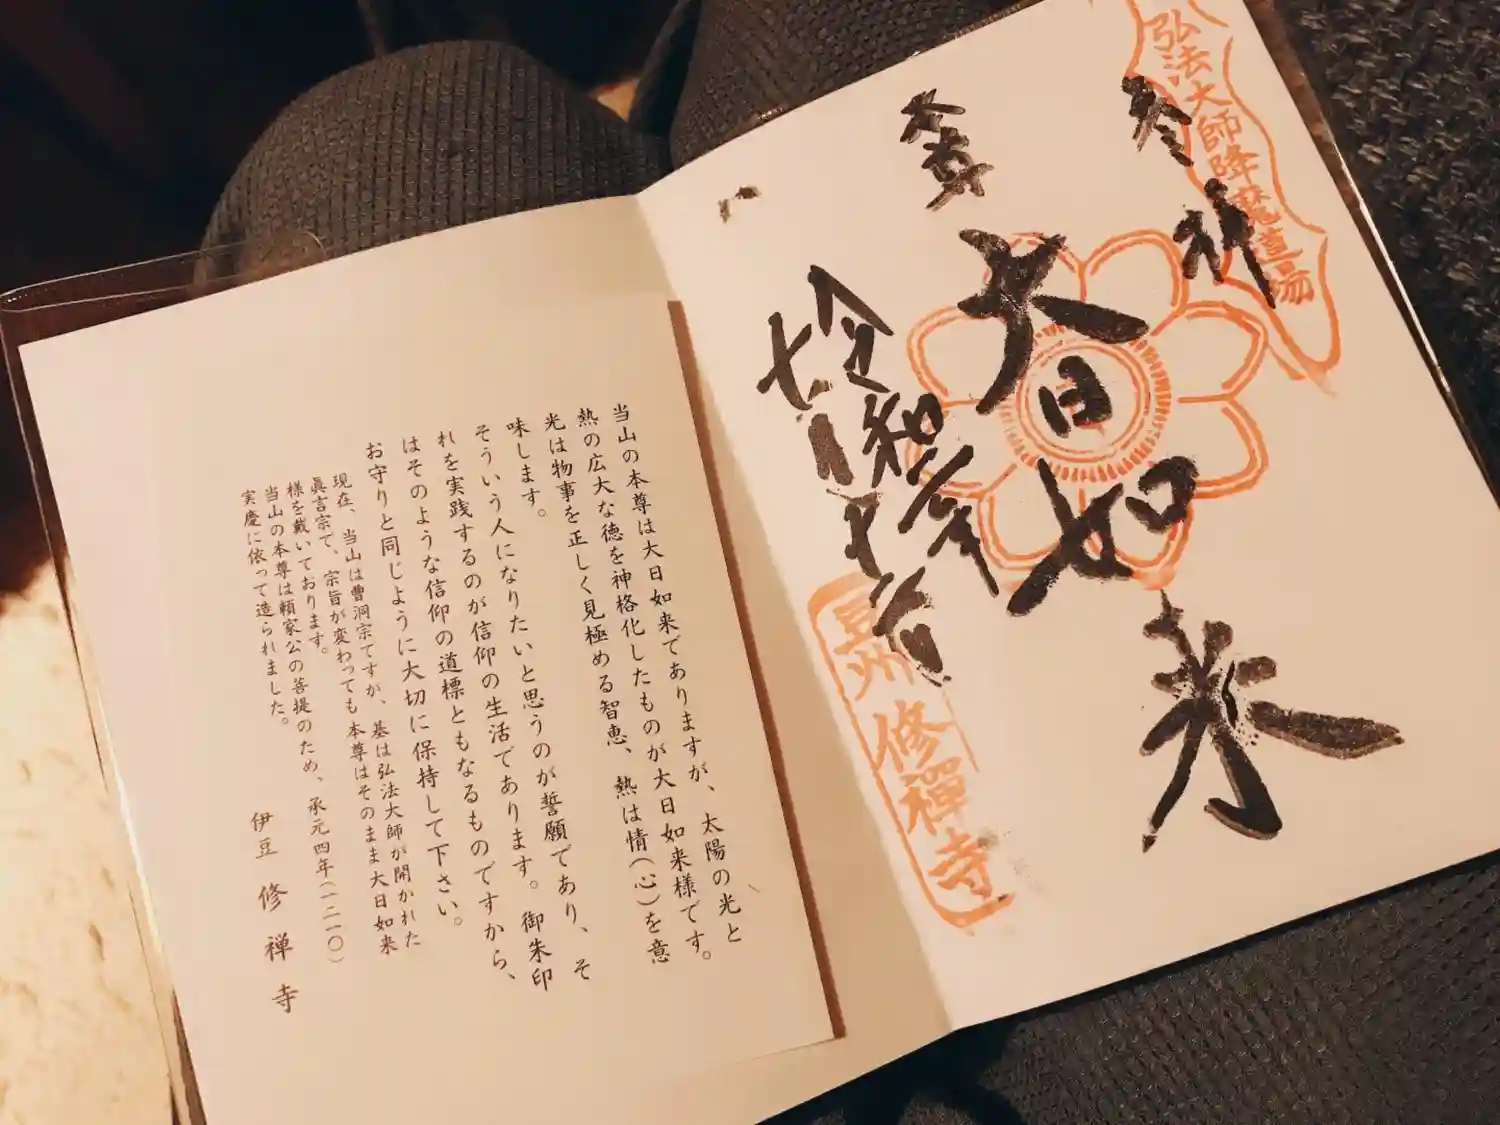 弘法大師降魔道場
奉拝
本尊
大日如来
令和元年
豆州 修禪寺
当山の本尊は大日如来でありますが、太陽の光と
熱の広大な徳を神格化したものが大日如来様です。
光は物事を正しく見極める智恵、熱は情(心)を意
味します。
そういう人になりたいと思うのが誓願であり、そ
れを実践するのが信仰の生活であります。御朱印
はそのような信仰の道標ともなるものですから、
お守りと同じように大切に保持して下さい。
現在、当山は曹洞宗ですが、基は弘法大師が開かれた
眞言宗で、宗旨が変わっても本尊はそのまま大日如来
様を戴いております。
当山の本尊は頼家公の菩提のため、承元四年(一二一〇)
実慶に依って造られました。
伊豆 修禅寺